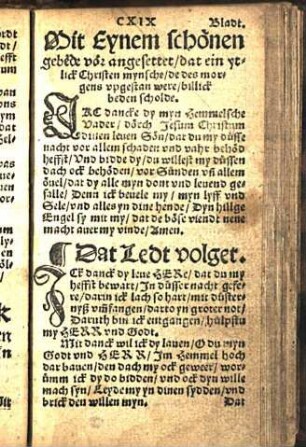 CXIX Bladt.
Mit Eynem schönen
gebede vör angesettet / dat ein yt-
lick Christen mynsche / de des mor-
gens vpgestan were / billick
beden scholde.
JCK dancke dy myn Hemmelsche
Vader / dörch Jesum Christum
dinen leuen Sön / dat du my düsse
nacht vor allem schaden vnd vahr behöd
heffst / Vnd bidde dy / du willest my düssen
dach ock behöden / vor Sünden vñ allem
öuel / dat dy alle myn dont vnd leuend ge-
falle / Denn ick beuele my / myn lyff vnd
Sele / vnd alles yn dine hende / Dyn hillge
Engel sy mit my / dat de böse viendt nene
macht auer my vinde / Amen.
¶ Dat Ledt volget.
JCk danck dy leue HERe / dat du my
hefft bewart / Jn düsser nacht gefe-
re / darin ick lach so hart / mit düster-
nyß vmfangen / darto yn groter not /
Daruth bin ick entgangen / hülpstu
my HERR vnd Godt.
Mit danck wil ick dy lauen / O du myn
Godt vnd HERR / Jm Hemmel hoch
dar bauen / den dach my ock geweer / wor-
ümm ick dy do bidden / vnd ock dyn wille
mach syn / Leyde my yn dinen sydden / vnd
brick den willen myn.
Dat